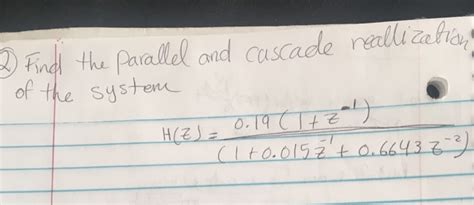 ② Find the parallel and cascade reallization
of the system
H(Z) = 0.19 ( 1 + z^-1 )
(1 + 0.015 z^-1 + 0.6643 z^-2)